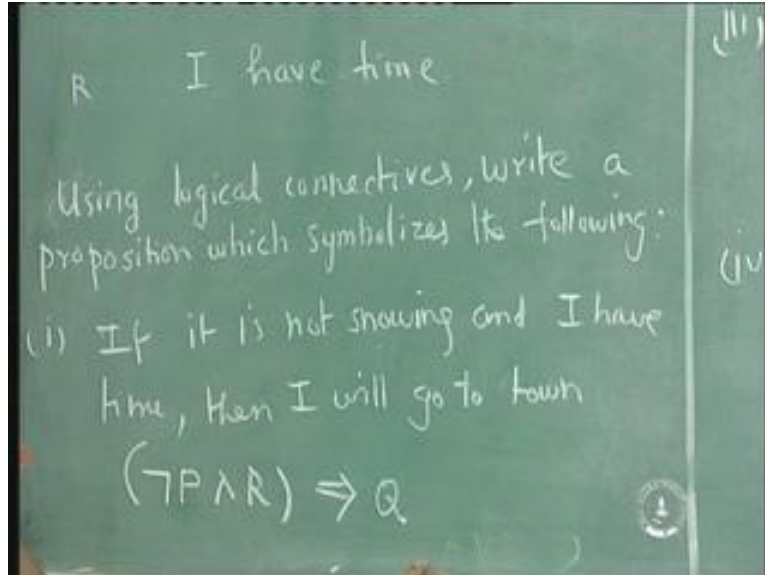 R I have time
Using logical connectives, write a
proposition which symbolizes the following:
(i) If it is not snowing and I have
time, then I will go to town
(¬P∧R) ⇒ Q
(iii)
(iv